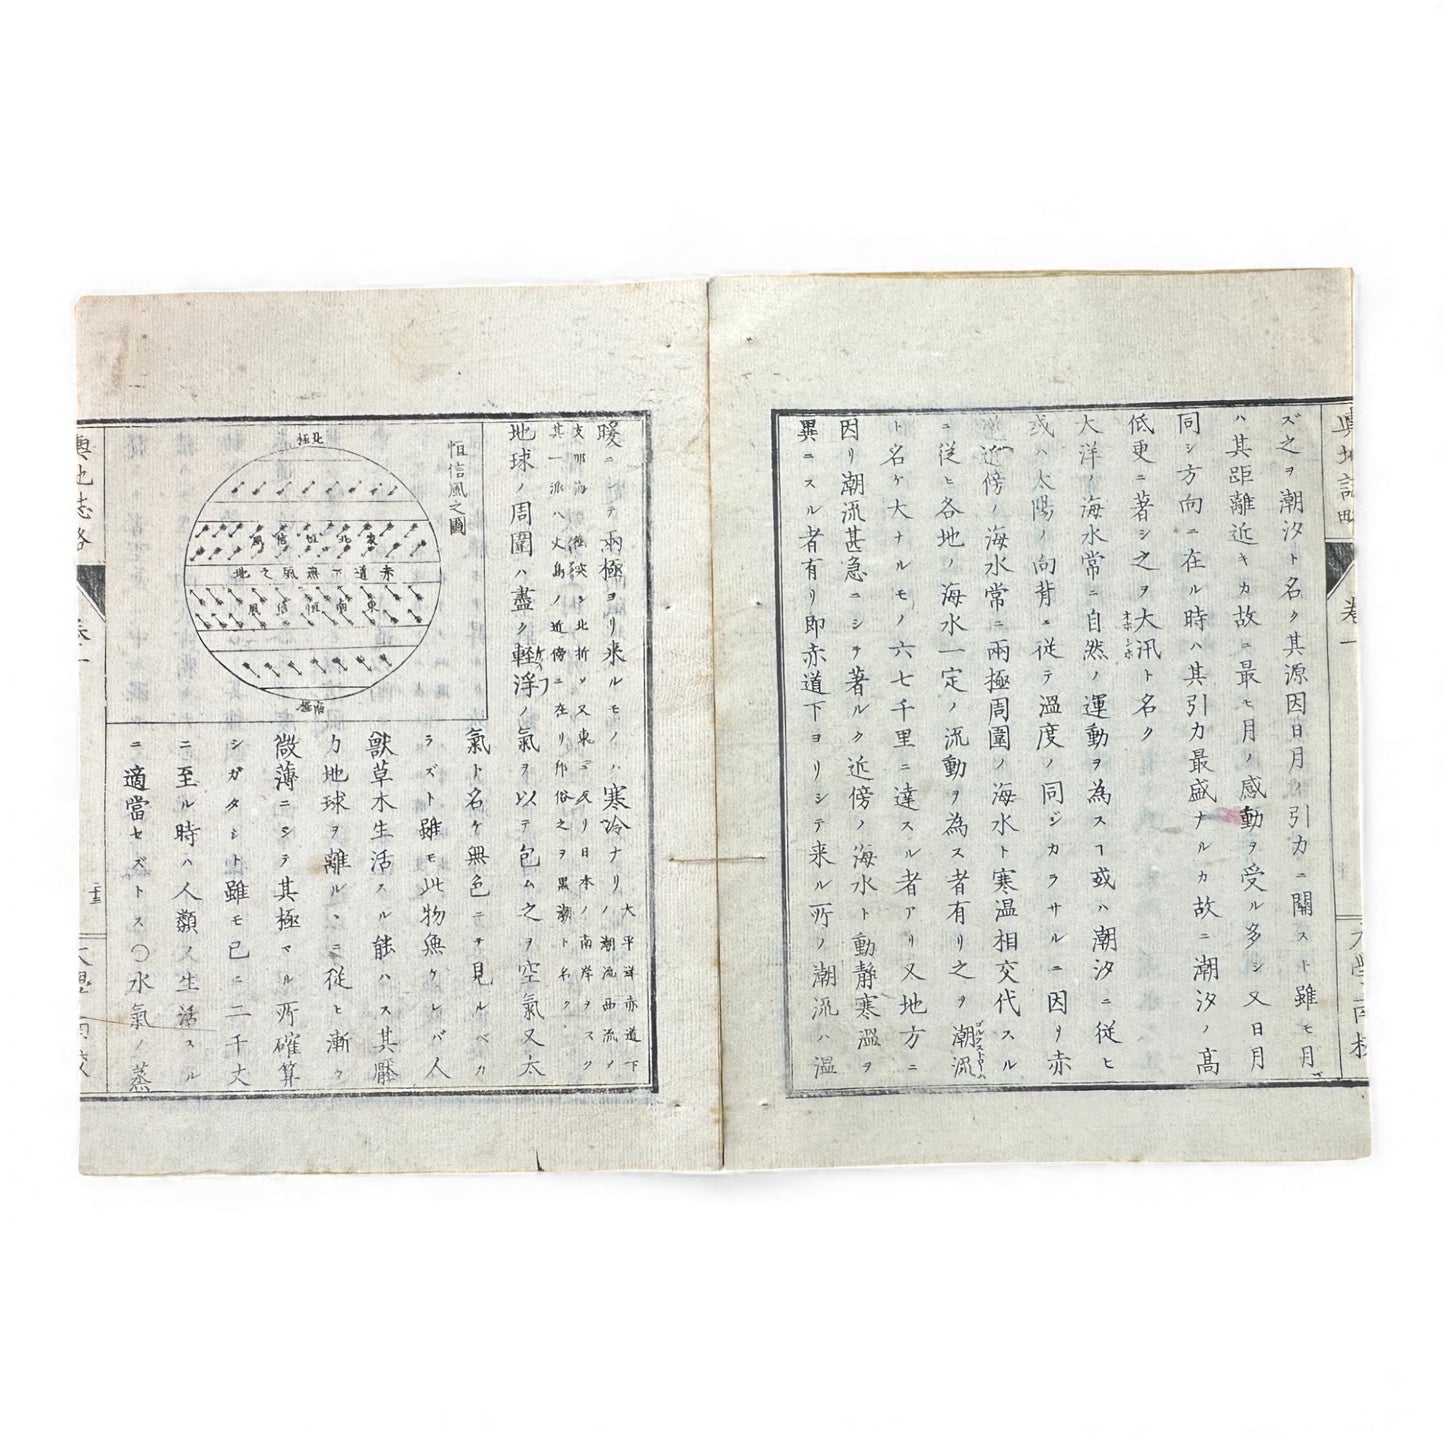 ズ之ヲ潮汐ト名ク其源因日月ノ引力ニ關スト雖モ月
ハ其距離近キカ故ニ最モ月ノ感動ヲ受ル多シ又日月
同シ方向ニ在ル時ハ其引力最盛ナルカ故ニ潮汐ノ高
低更ニ著シ之ヲ大汛ト名ク
大洋ノ海水常ニ自然ノ運動ヲ為スヿ或ハ潮汐ニ従ヒ
或ハ太陽ノ向背ニ従テ温度ノ同ジカラサルニ因リ赤
道近傍ノ海水常ニ兩極周圍ノ海水ト寒温相交代スル
ニ従ヒ各地ノ海水一定ノ流動ヲ為ス者有リ之ヲ潮流
ト名ケ大ナルモノ六七千里ニ達スル者アリ又地方ニ
因リ潮流甚急ニシヲ著ルク近傍ノ海水ト動静寒温ヲ
異ニスル者有リ即赤道下ヨリシテ来ル所ノ潮流ハ温
巻一
暖ニシテ兩極ヨリ来ルモノハ寒冷ナリ
大平洋赤道下ノ潮流西流ノ
支那海衝突シ北折ソ又東ニ反リ日本ノ南岸ヲスク
其一派八丈島ノ近傍ニ在リ俗之ヲ黒潮ト名ク
地球ノ周圍ハ盡ク輕浮ノ氣ヲ以テ包ム之ヲ空氣又大
氣ト名ケ無色ニヲ見ルベカ
ラズト雖モ此物無ケレバ人
獸草木生活スル能ハス其體
力地球ヲ離ルヽニ従ヒ漸々
微薄ニシテ其極マル所確算
シガタシト雖モ已ニ二千丈
ニ至ル時ハ人類ノ生活スル
ニ適當セズトス〇水氣ノ蒸
恒信風之圖
北極
東北恒信風
赤道下無風之地
東南恒信風
南極
輿地誌略